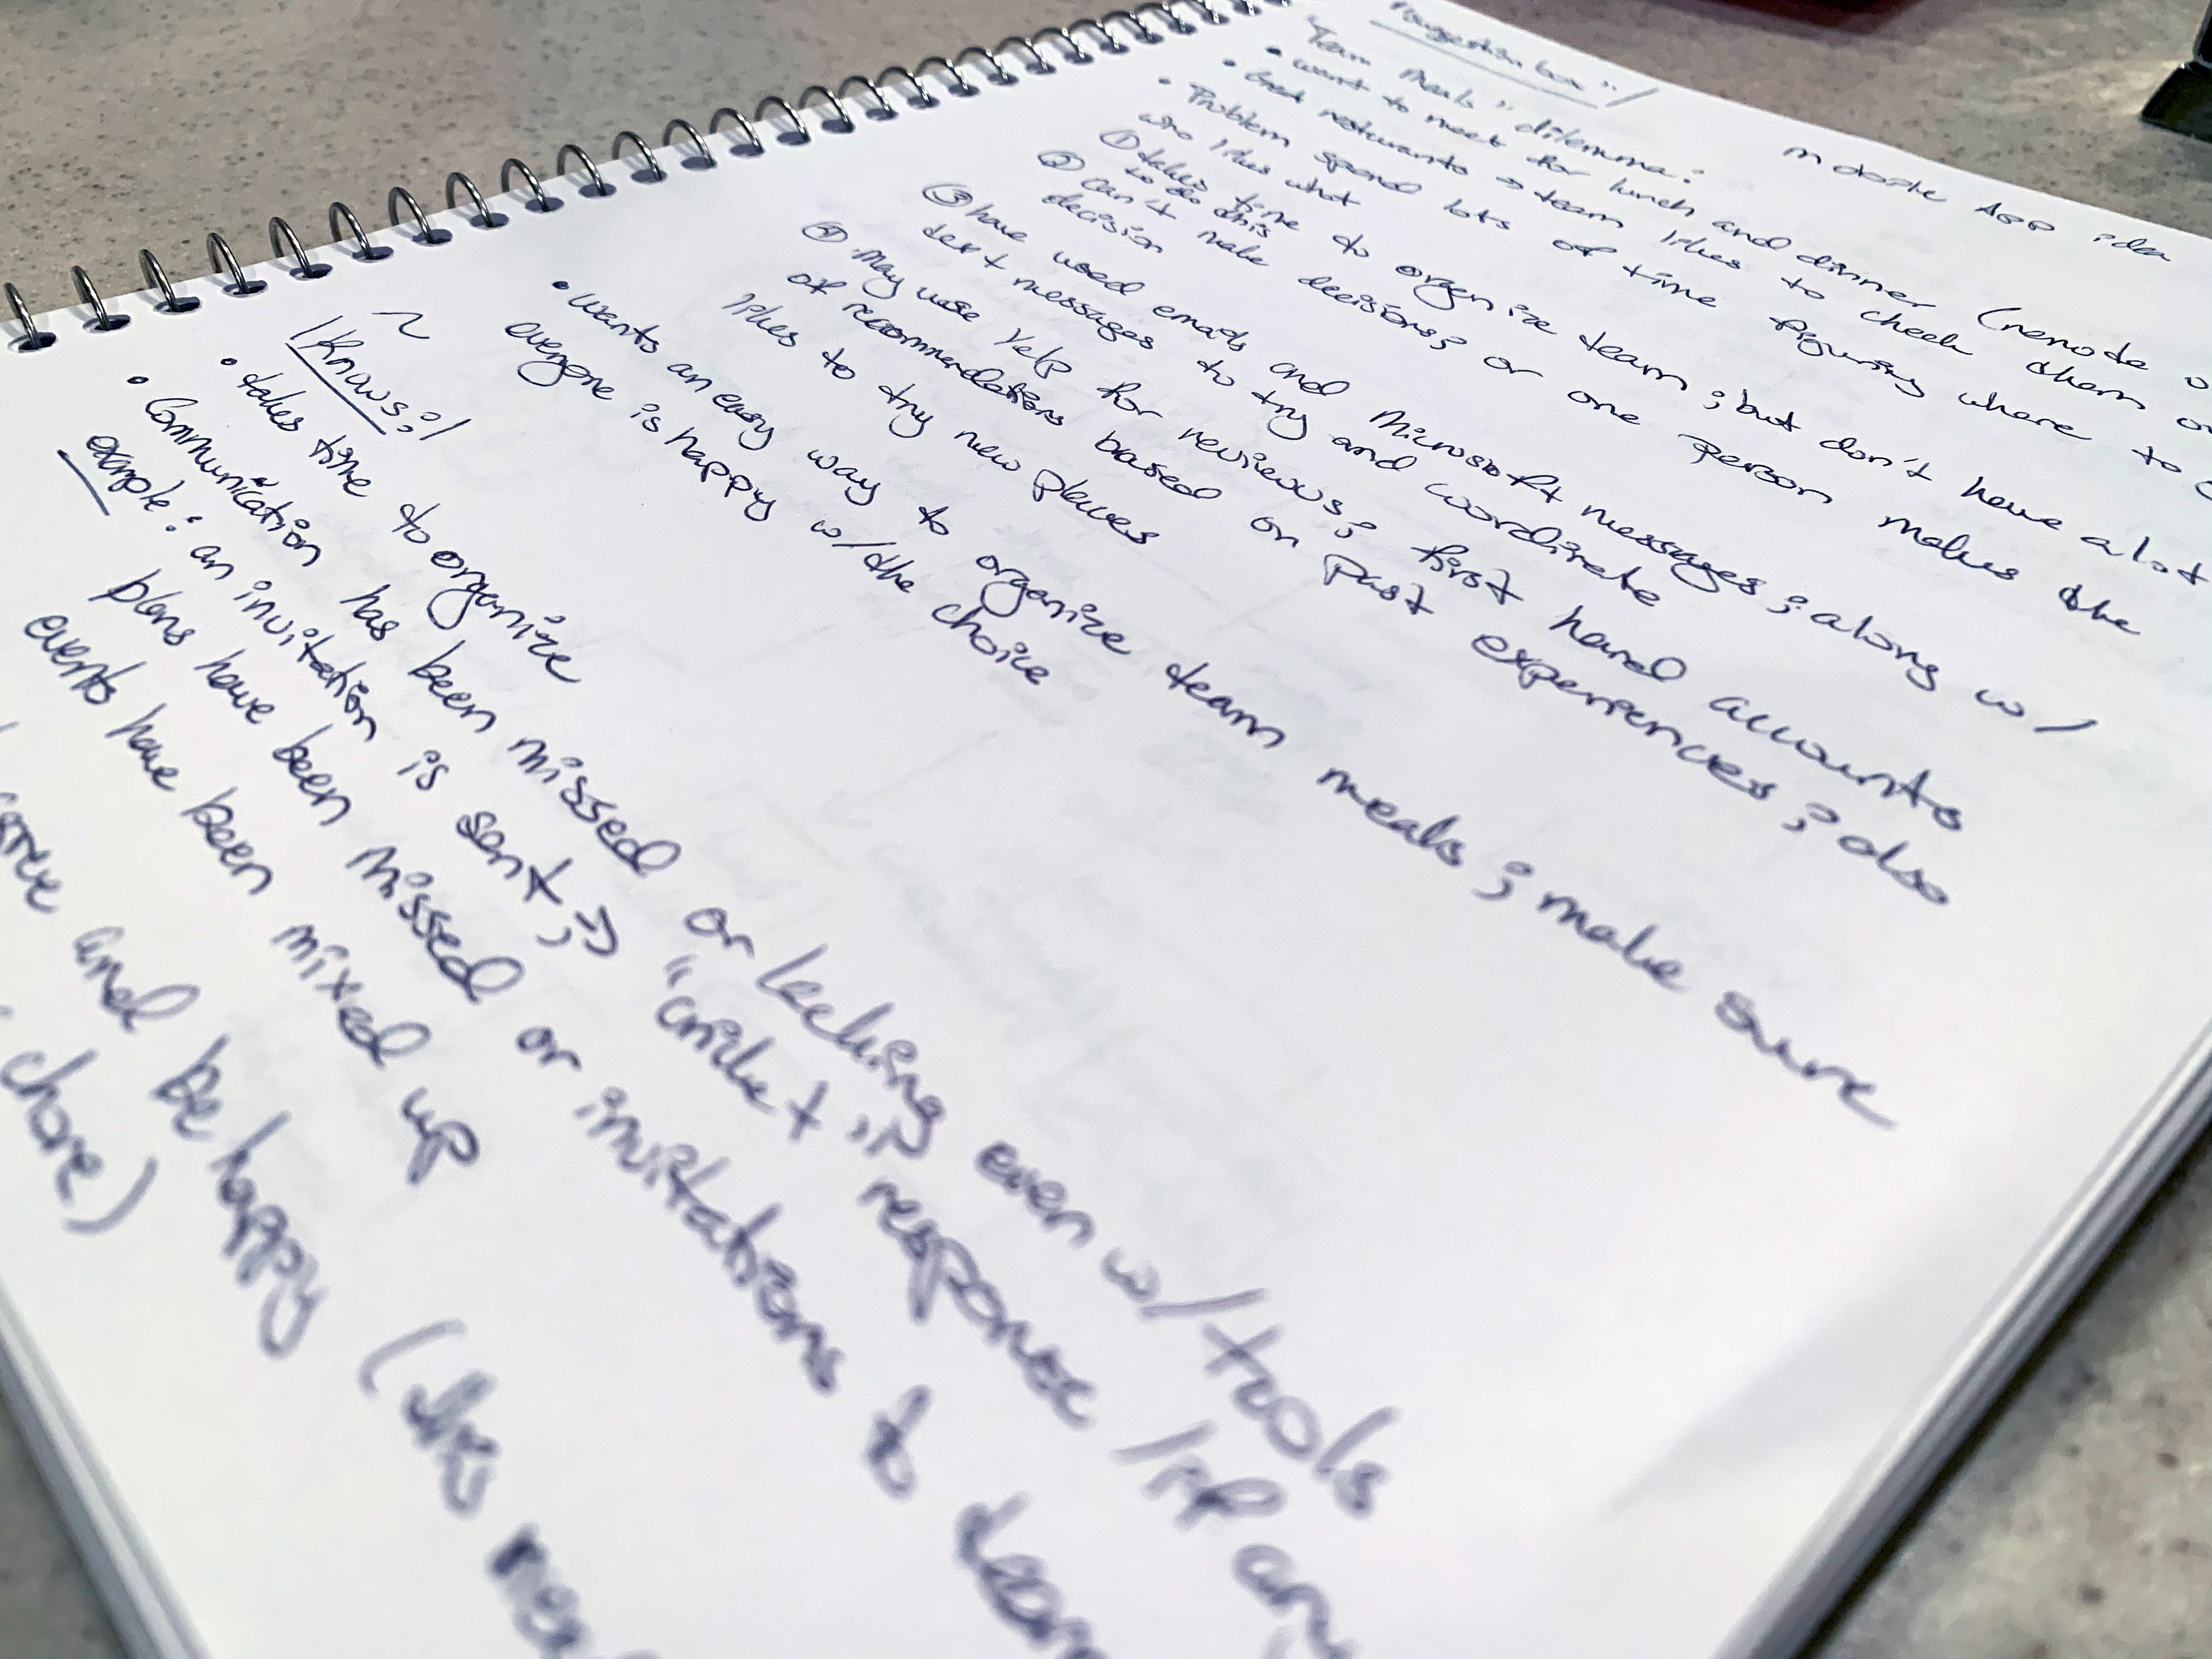 mobile App idea
"Suggestion box"
"Team Meals" dilemma:
• want to meet for lunch and dinner (remote
• Great resturants → team likes to check them
• Problem spend lots of time figuring where to
who likes what
① takes time to organize team; but don't have a lot
to do this
② can't make decisions; or one person makes the
decision
③ have used emails and Microsoft messages; along w/
text messages to try and coordinate
④ May use Yelp for reviews; first hand accounts
of recommendations based on past experiences; also
likes to try new places
• wants an easy way to organize team meals; make sure
everyone is happy w/the choice
~
/Knows:/
• takes time to organize
• Communication has been missed or lacking even w/tools
example: an invitation is sent; → "cricket," response / if any
plans have been missed or invitations to team
events have been mixed up
and be happy (this
chore)